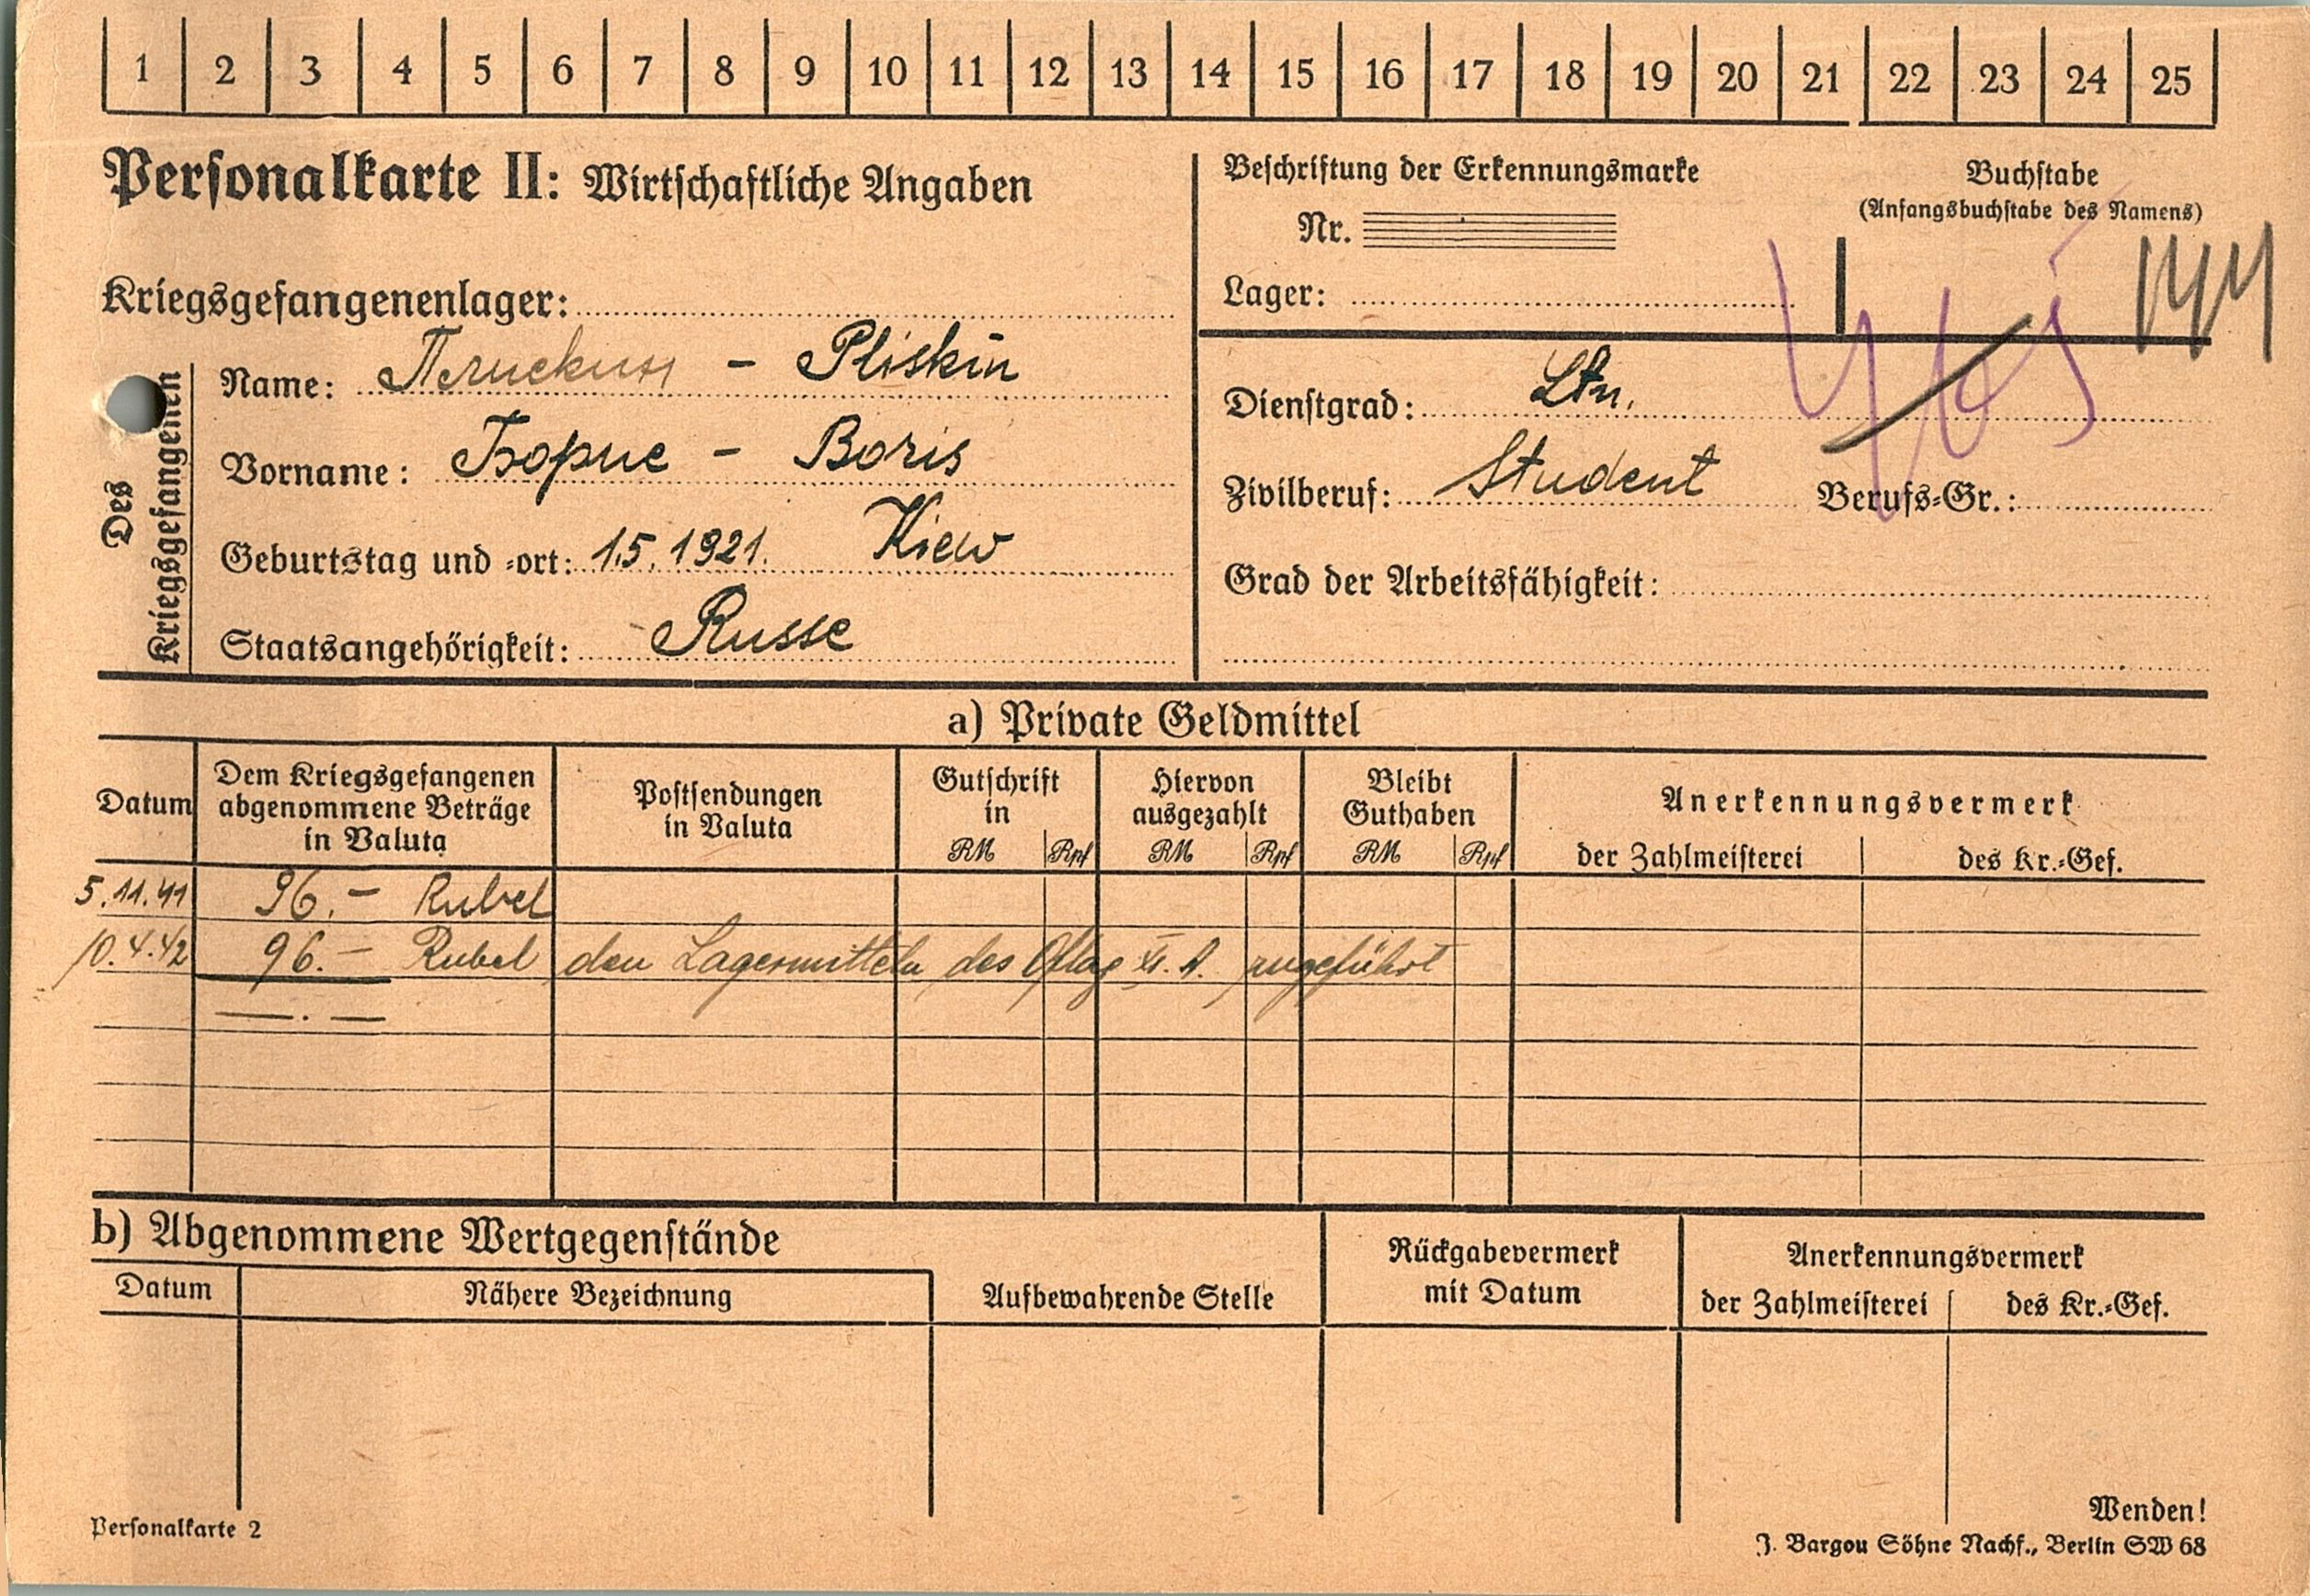 1 2 3 4 5 6 7 8 9 10 11 12 13 14 15 16 17 18 19 20 21 22 23 24 25
Personalkarte II: Wirtschaftliche Angaben
Beschriftung der Erkennungsmarke
Nr.
Lager:
Buchstabe
(Anfangsbuchstabe des Namens)
Kriegsgefangenenlager:
Des Kriegsgefangenen
Name: Плискин - Pliskin
Vorname: Борис - Boris
Geburtstag und -ort: 1.5.1921. Kiew
Staatsangehörigkeit: Russe
Dienstgrad: Ltn.
Zivilberuf: Student Berufs-Gr.:
Grad der Arbeitsfähigkeit:
a) Private Geldmittel
Datum
Dem Kriegsgefangenen abgenommene Beträge in Valuta
Postsendungen in Valuta
Gutschrift in RM Rpf
Hiervon ausgezahlt RM Rpf
Bleibt Guthaben RM Rpf
Anerkennungsvermerk
der Zahlmeisterei des Kr.-Gef.
5.11.41 96.- Rubel
10.4.42 96.- Rubel den Lagermitteln des Oflag XI. A. zugeführt
—.—
b) Abgenommene Wertgegenstände
Datum
Nähere Bezeichnung
Aufbewahrende Stelle
Rückgabevermerk mit Datum
Anerkennungsvermerk
der Zahlmeisterei des Kr.-Gef.
Wenden!
Personalkarte 2
J. Bargou Söhne Nachf., Berlin SW 68